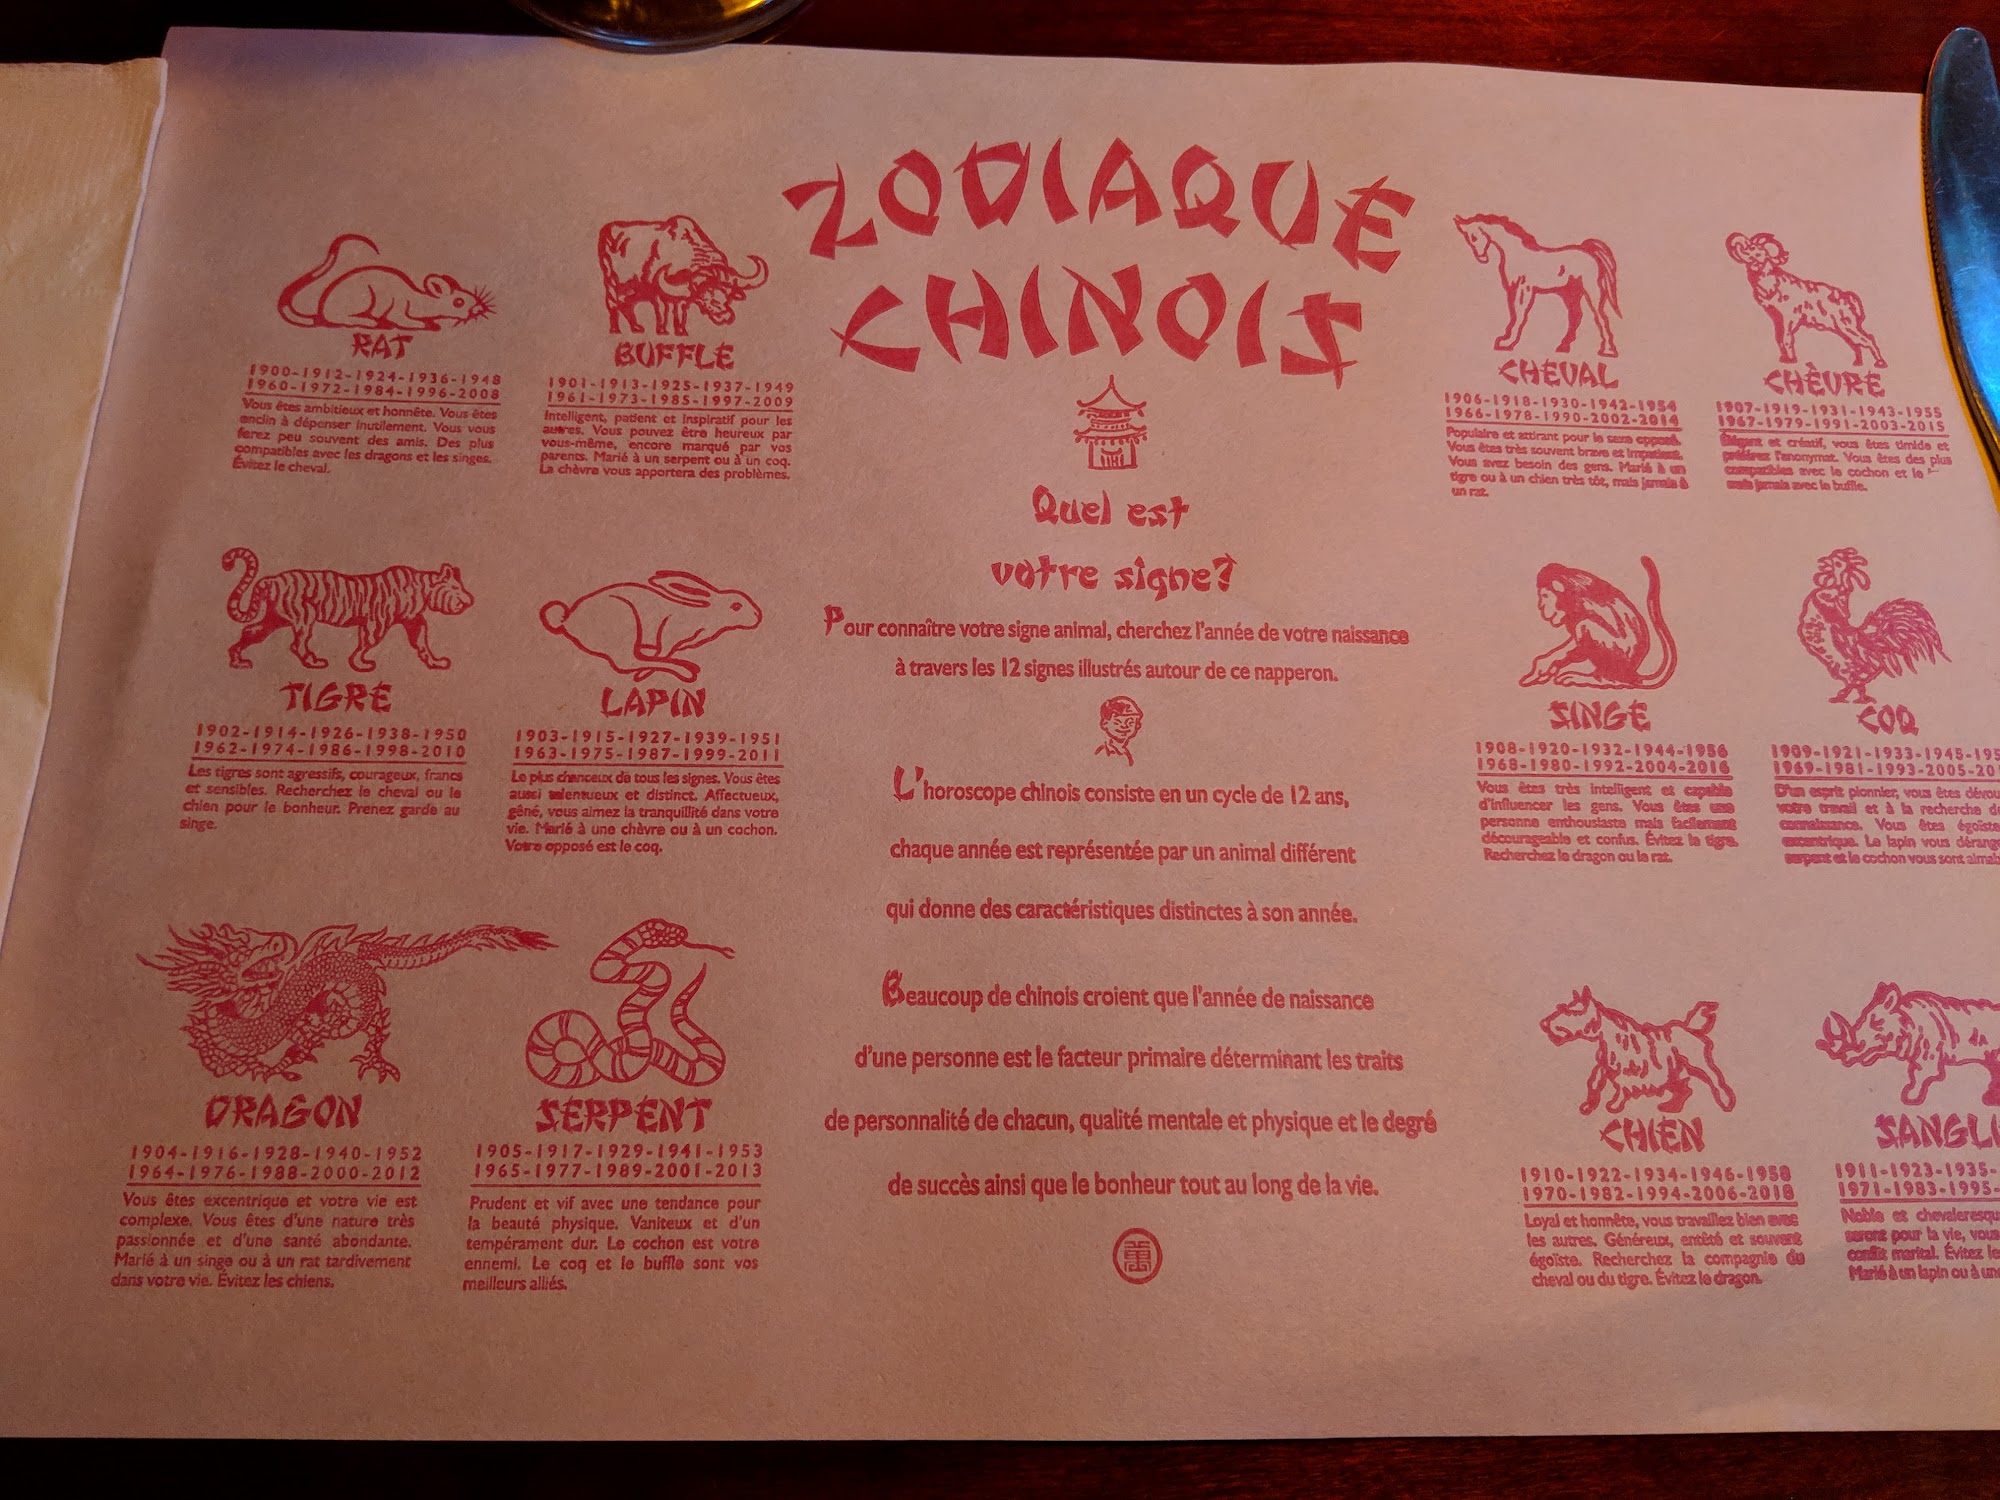 ZODIAQUE
CHINOIS
RAT
1900-1912-1924-1936-1948
1960-1972-1984-1996-2008
Vous êtes ambitieux et honnête. Vous êtes
enclin à dépenser inutilement. Vous vous
ferez peu souvent des amis. Des plus
compatibles avec les dragons et les singes.
Évitez le cheval.
BUFFLE
1901-1913-1925-1937-1949
1961-1973-1985-1997-2009
Intelligent, patient et inspiratif pour les
autres. Vous pouvez être heureux par
vous-même, encore marqué par vos
parents. Marié à un serpent ou à un coq.
La chèvre vous apportera des problèmes.
TIGRE
1902-1914-1926-1938-1950
1962-1974-1986-1998-2010
Les tigres sont agressifs, courageux, francs
et sensibles. Recherchez le cheval ou le
chien pour le bonheur. Prenez garde au
singe.
LAPIN
1903-1915-1927-1939-1951
1963-1975-1987-1999-2011
Le plus chanceux de tous les signes. Vous êtes
aussi talentueux et distinct. Affectueux,
gêné, vous aimez la tranquillité dans votre
vie. Marié à une chèvre ou à un cochon.
Votre opposé est le coq.
DRAGON
1904-1916-1928-1940-1952
1964-1976-1988-2000-2012
Vous êtes excentrique et votre vie est
complexe. Vous êtes d'une nature très
passionnée et d'une santé abondante.
Marié à un singe ou à un rat tardivement
dans votre vie. Évitez les chiens.
SERPENT
1905-1917-1929-1941-1953
1965-1977-1989-2001-2013
Prudent et vif avec une tendance pour
la beauté physique. Vaniteux et d'un
tempérament dur. Le cochon est votre
ennemi. Le coq et le buffle sont vos
meilleurs alliés.
Quel est
votre signe?
Pour connaître votre signe animal, cherchez l'année de votre naissance
à travers les 12 signes illustrés autour de ce napperon.
L'horoscope chinois consiste en un cycle de 12 ans,
chaque année est représentée par un animal différent
qui donne des caractéristiques distinctes à son année.
Beaucoup de chinois croient que l'année de naissance
d'une personne est le facteur primaire déterminant les traits
de personnalité de chacun, qualité mentale et physique et le degré
de succès ainsi que le bonheur tout au long de la vie.
CHEVAL
1906-1918-1930-1942-1954
1966-1978-1990-2002-2014
Populaire et attirant pour le sexe opposé.
Vous êtes très souvent brave et impatient.
Vous avez besoin des gens. Marié à un
tigre ou à un chien très tôt, mais jamais à
un rat.
CHÈVRE
1907-1919-1931-1943-1955
1967-1979-1991-2003-2015
Élégant et créatif, vous êtes timide et
préférez l'anonymat. Vous êtes des plus
compatibles avec le cochon et le
mais jamais avec le buffle.
SINGE
1908-1920-1932-1944-1956
1968-1980-1992-2004-2016
Vous êtes très intelligent et capable
d'influencer les gens. Vous êtes une
personne enthousiaste mais facilement
décourageable et confus. Évitez le tigre.
Recherchez le dragon ou le rat.
COQ
1909-1921-1933-1945-195
1969-1981-1993-2005-20
D'un esprit pionnier, vous êtes dévou
votre travail et à la recherche de
connaissance. Vous êtes égoïste
excentrique. Le lapin vous dérang
serpent et le cochon vous sont aimab
CHIEN
1910-1922-1934-1946-1958
1970-1982-1994-2006-2018
Loyal et honnête, vous travaillez bien avec
les autres. Généreux, entêté et souvent
égoïste. Recherchez la compagnie du
cheval ou du tigre. Évitez le dragon.
SANGLI
1911-1923-1935-
1971-1983-1995-
Noble et chevaleresqu
seront pour la vie, vous
conflit marital. Évitez le
Marié à un lapin ou à un